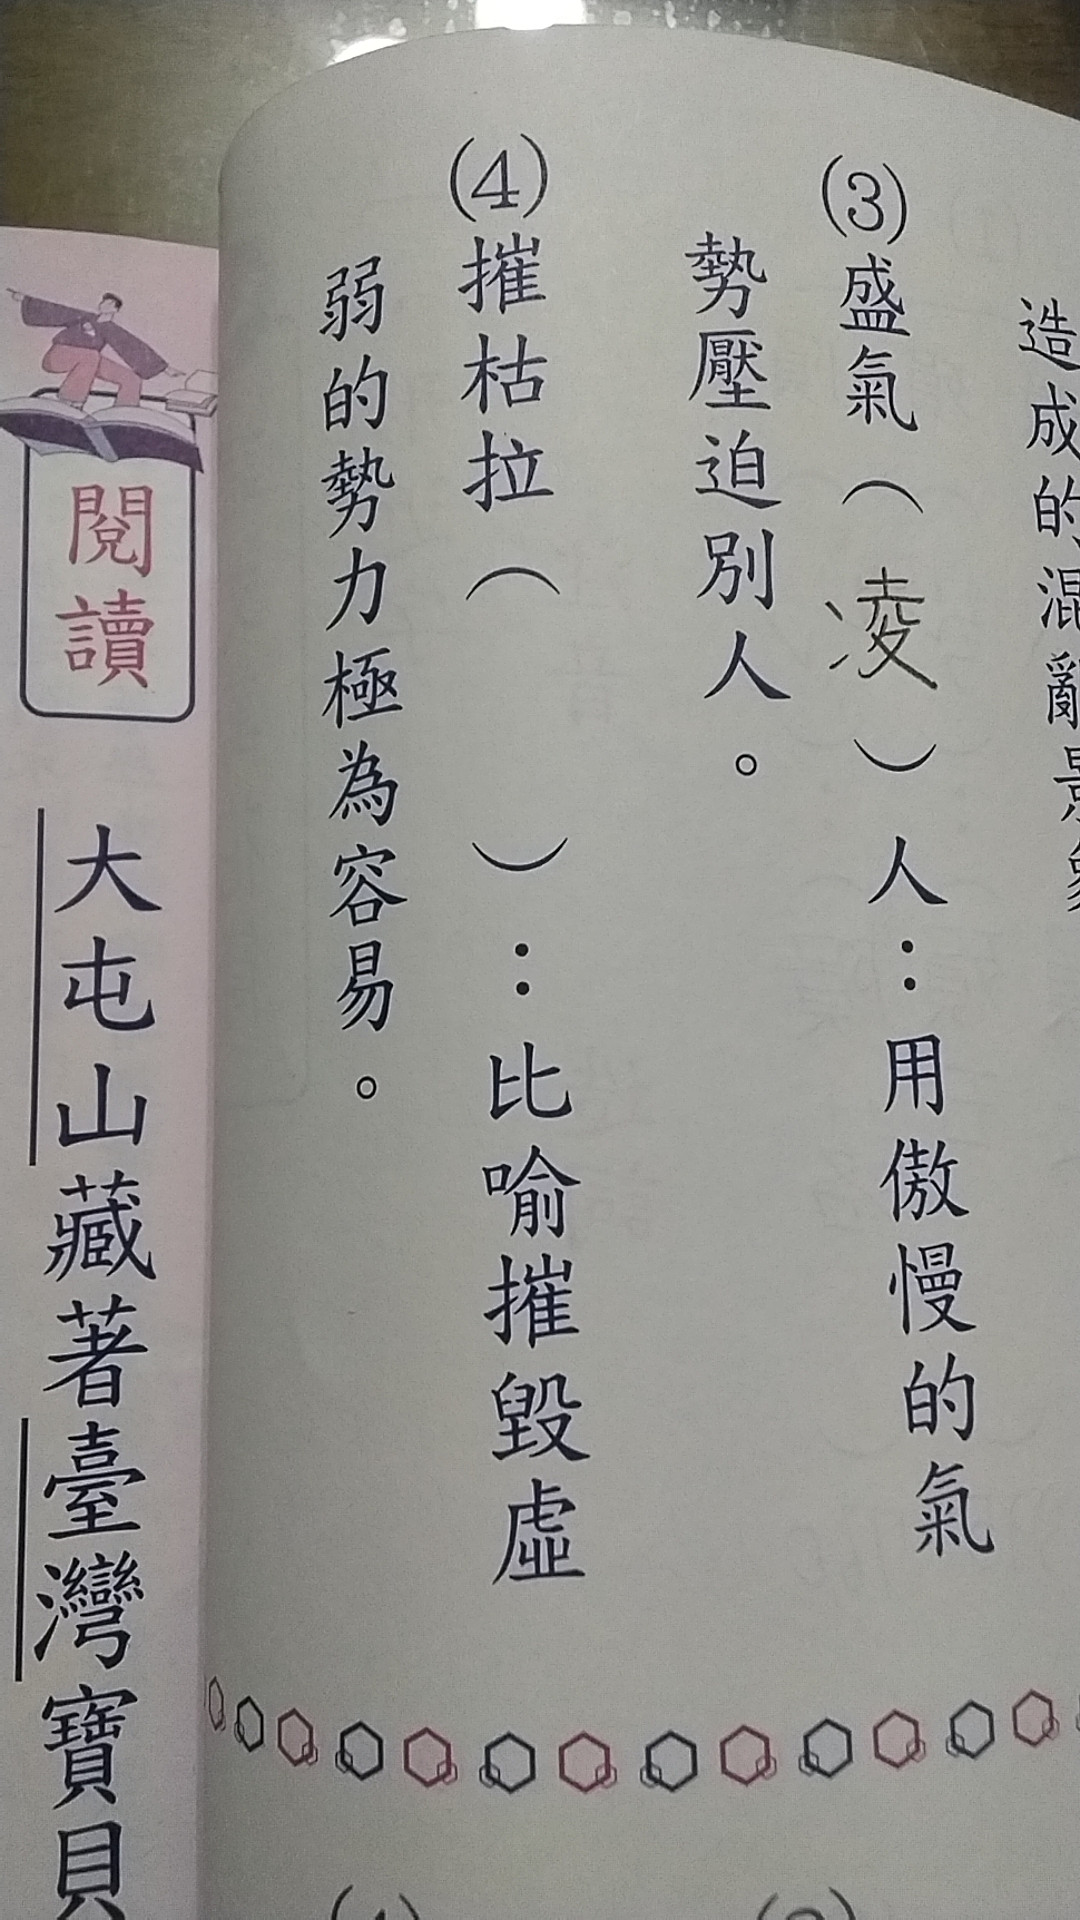 造成的混亂景象
(3)盛氣(凌)人：用傲慢的氣
勢壓迫別人。
(4)摧枯拉(　)：比喻摧毀虛
弱的勢力極為容易。
閱讀
大屯山藏著臺灣寶貝